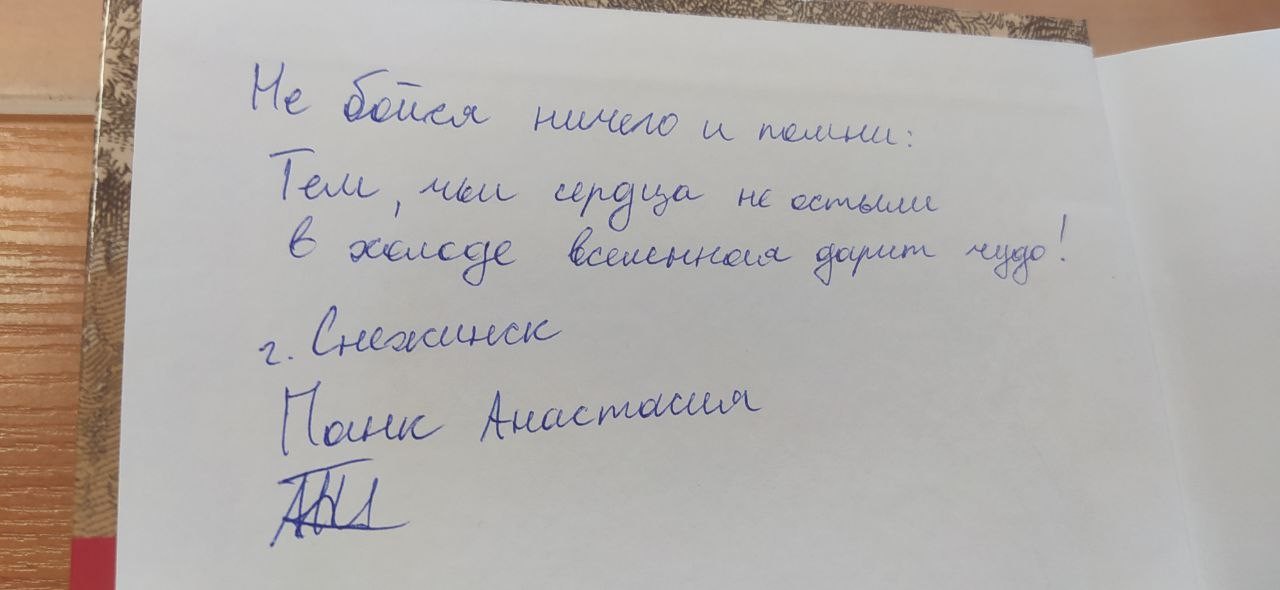 Не бойся ничего и помни:
Тем, чьи сердца не остыли
в холоде вселенная дарит чудо!
г. Снежинск
Панк Анастасия